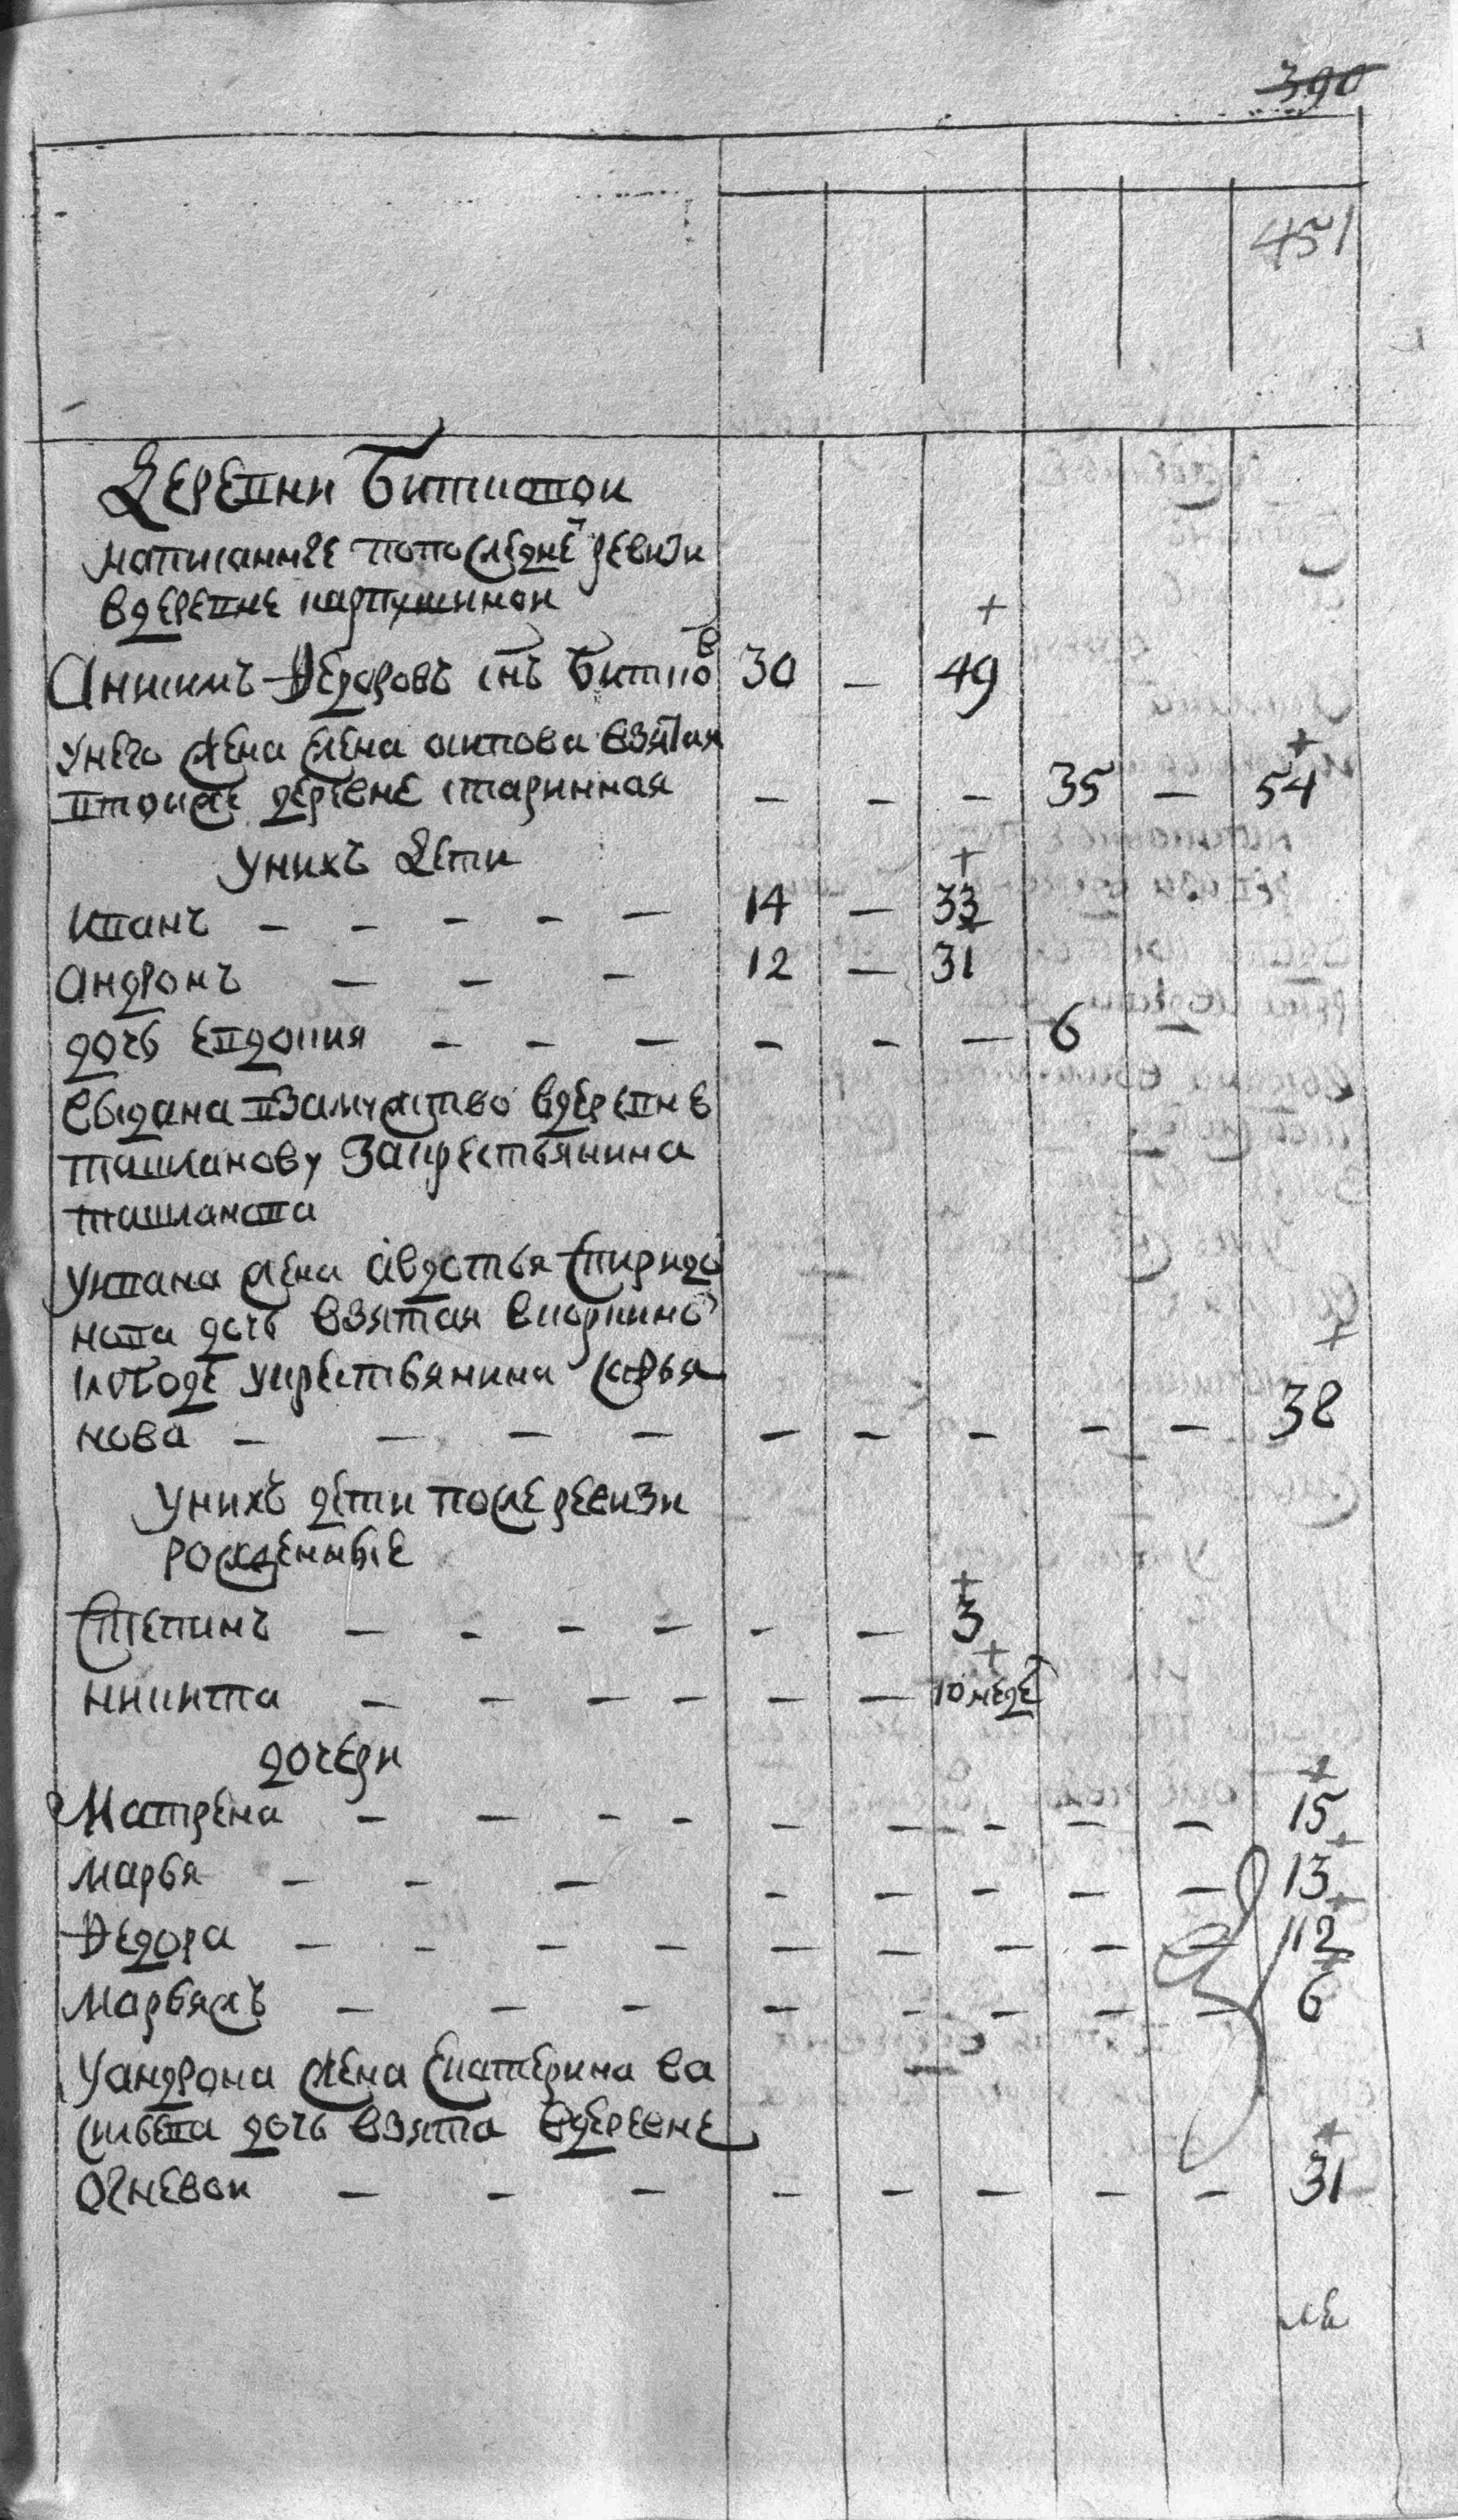 390
451
Деревни Биткиовой
написанные попоследнеи ревизи
вдеревне карпушиной
Аникимъ Федоровъ снъ Биткиовъ 30 — 49
унего жена елена осипова взятая
втойже деревне старинная — — — 35 — 54
унихъ дети
иванъ — — — — — 14 — 33
андронъ — — — 12 — 31
дочь евдокия — — — — — — 6 —
выдана взамужство вдеревнѣ
ташланову закрестьянина
ташланова
уивана жена авдотья спиридо
нова дочь взятая вкоркино
слободе укрестьянина
нова — — — — — — — — — 38
унихъ дети после ревизи
рожденные
степанъ — — — — — — 3
никита — — — — — — 10 неде
дочери
матрена — — — — — — — — — 15
марья — — — — — — — — 13
федора — — — — — — — — — 12
марьяжъ — — — — — — — — 6
уандрона жена екатерина ва
сильева дочь взята вдеревне
огневои — — — — — — — — 31